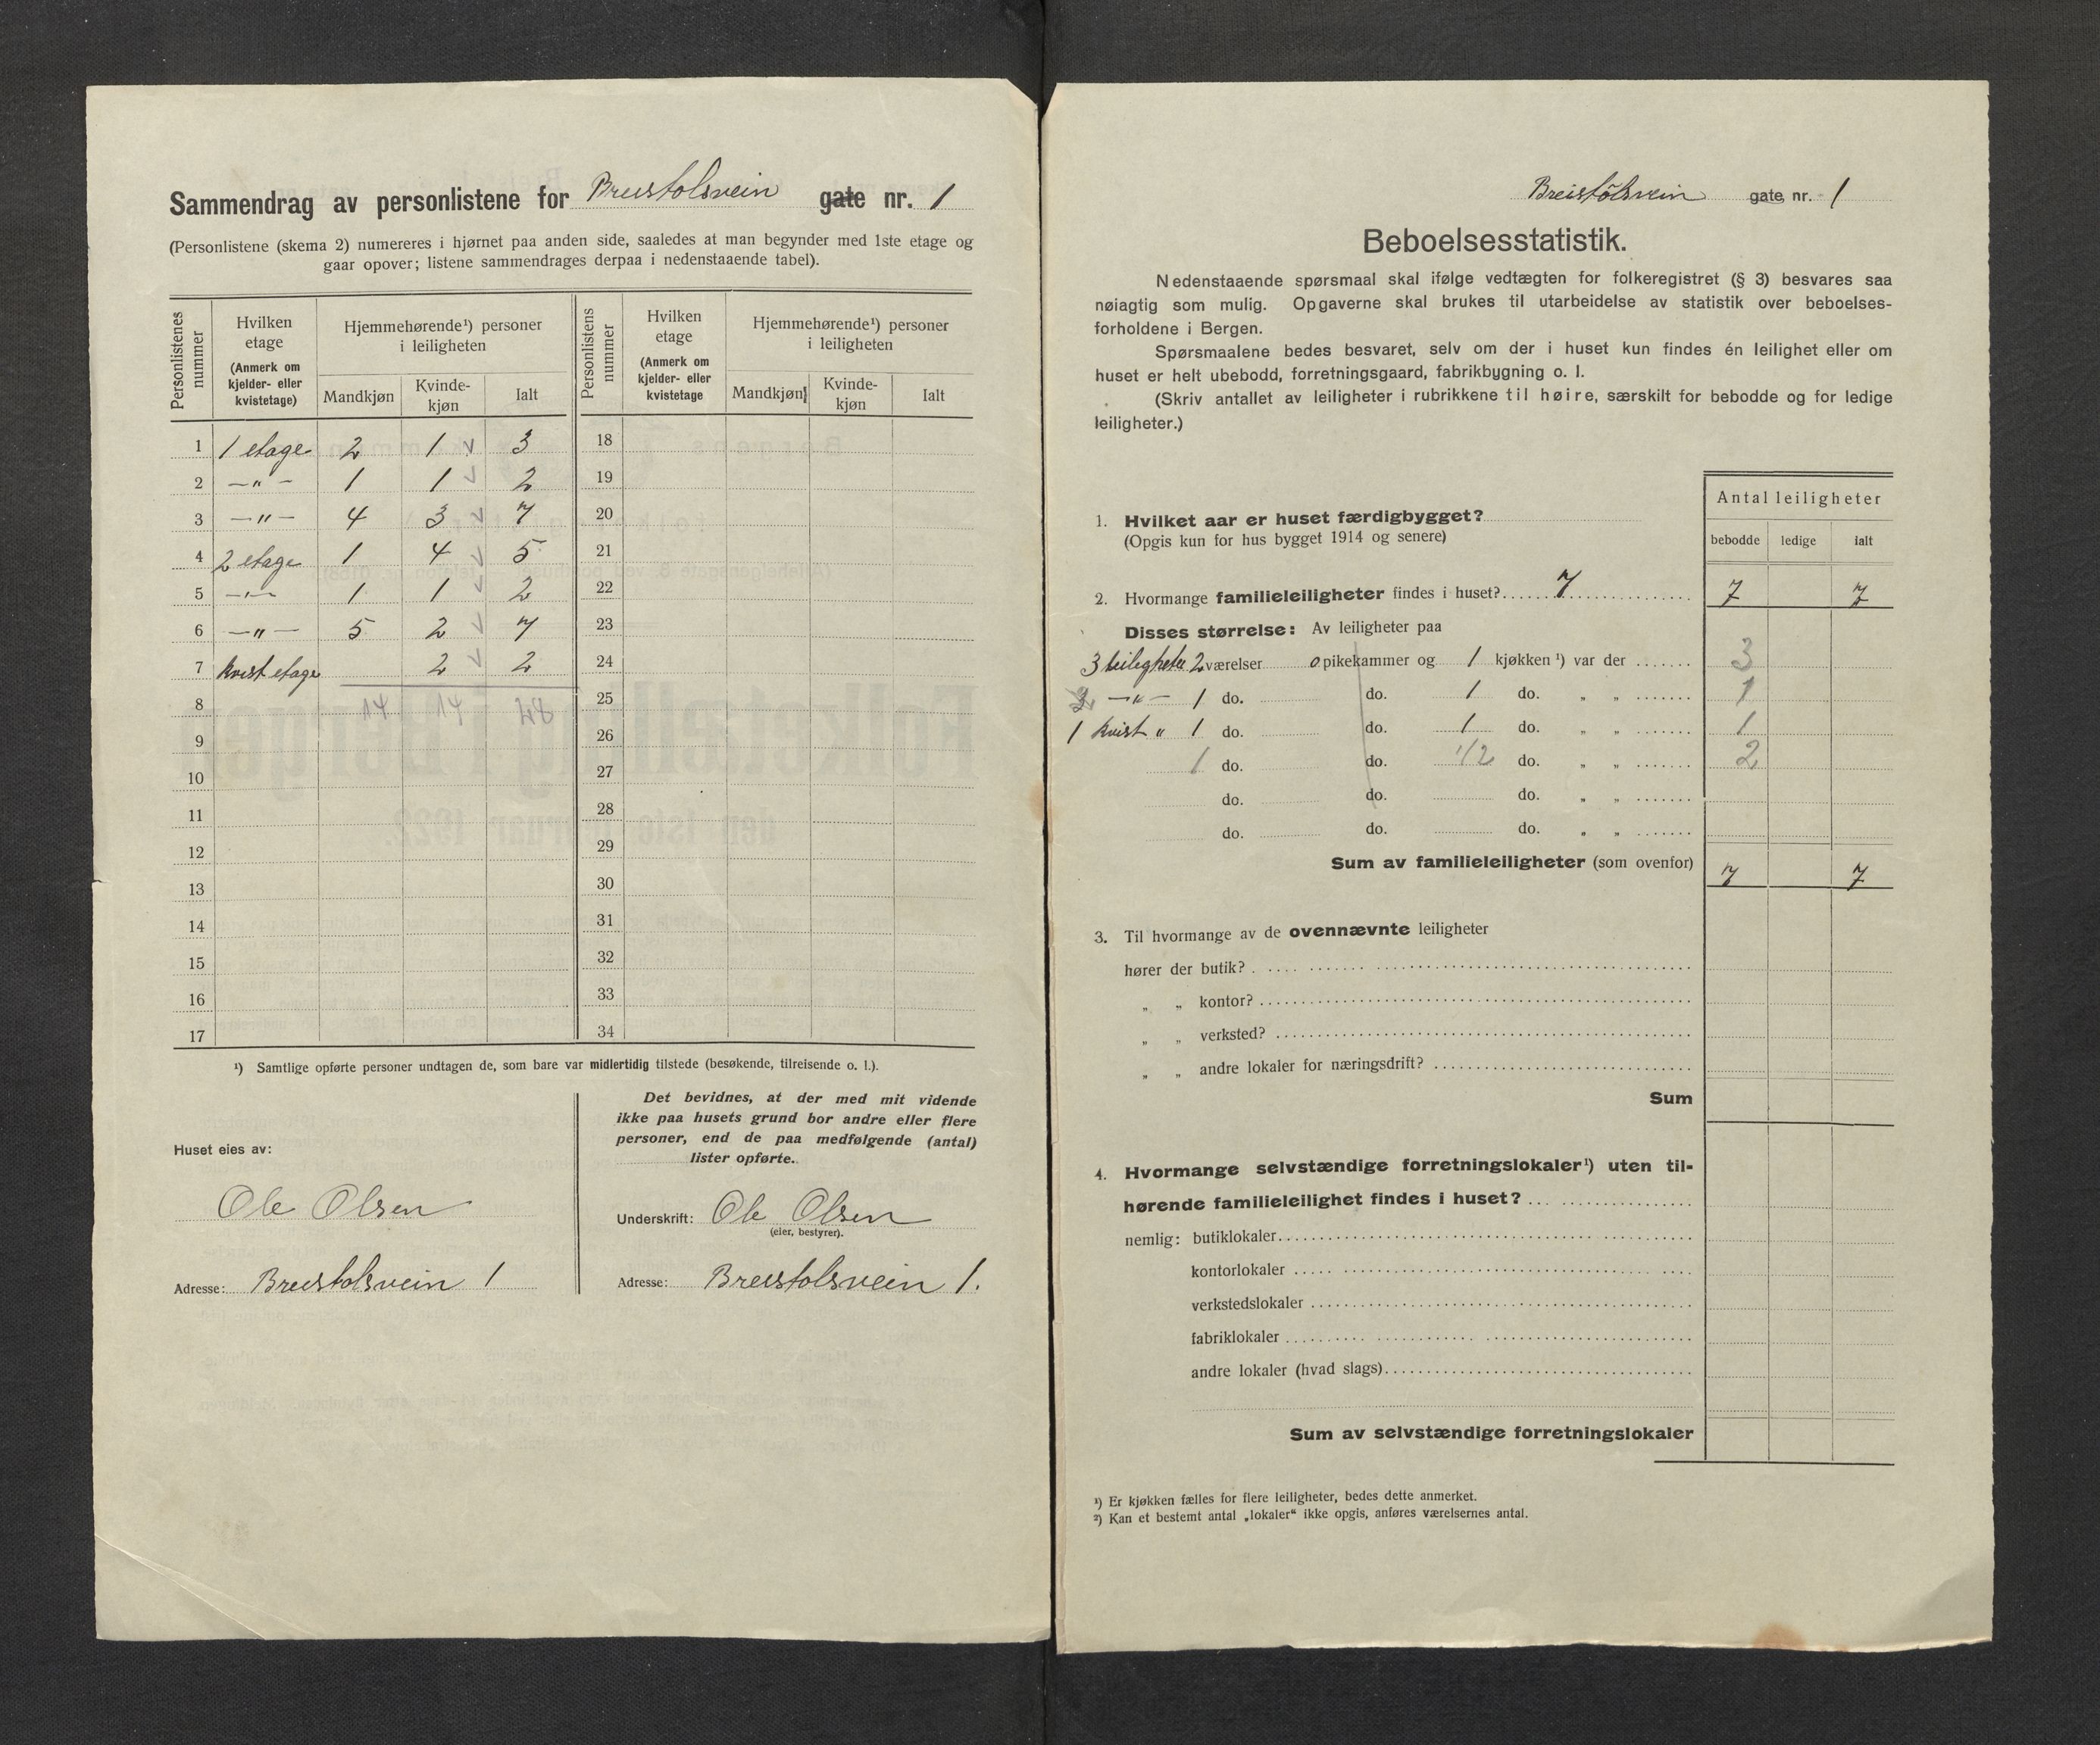 Sammendrag av personlistene for Breistolsvein gate nr. 1
(Personlistene (skema 2) numereres i hjørnet paa anden side, saaledes at man begynder med 1ste etage og
gaar opover; listene sammendrages derpaa i nedenstaaende tabel).
Personlistenes nummer
Hvilken etage
(Anmerk om kjelder- eller kvistetage)
Hjemmehørende¹) personer i leiligheten
Mandkjøn Kvinde-kjøn Ialt
Personlistens nummer
Hvilken etage
(Anmerk om kjelder- eller kvistetage
Hjemmehørende¹) personer i leiligheten
Mandkjøn Kvinde-kjøn Ialt
1 1 etage 2 1 3 18
2 —"— 1 1 2 19
3 —"— 4 3 7 20
4 2 etage 1 4 5 21
5 —"— 1 1 2 22
6 —"— 5 2 7 23
7 kvist etage 2 2 24
8 14 14 28 25
9 26
10 27
11 28
12 29
13 30
14 31
15 32
16 33
17 34
¹) Samtlige opførte personer undtagen de, som bare var midlertidig tilstede (besøkende, tilreisende o. l.).
Huset eies av:
Ole Olsen
Adresse: Breistolsvein 1
Det bevidnes, at der med mit vidende
ikke paa husets grund bor andre eller flere
personer, end de paa medfølgende (antal)
lister opførte.
Underskrift: Ole Olsen
(eier, bestyrer).
Adresse: Breistolsvein 1.
Breistölsvein gate nr. 1
Beboelsesstatistik.
Nedenstaaende spørsmaal skal ifølge vedtægten for folkeregistret (§ 3) besvares saa
nøiagtig som mulig. Opgaverne skal brukes til utarbeidelse av statistik over beboelses-
forholdene i Bergen.
Spørsmaalene bedes besvaret, selv om der i huset kun findes én leilighet eller om
huset er helt ubebodd, forretningsgaard, fabrikbygning o. l.
(Skriv antallet av leiligheter i rubrikkene til høire, særskilt for bebodde og for ledige
leiligheter.)
Antal leiligheter
bebodde ledige ialt
1. Hvilket aar er huset færdigbygget?
(Opgis kun for hus bygget 1914 og senere)
2. Hvormange familieleiligheter findes i huset? 7 7 7
Disses størrelse: Av leiligheter paa
3 leiligheter 2 værelser 0 pikekammer og 1 kjøkken¹) var der 3
—"— 1 do. do. 1 do. " " 1
1 kvist " 1 do. do. 1 do. " " 1
1 do. do. 1/2 do. " " 2
do. do. do. " "
do. do. do. " "
Sum av familieleiligheter (som ovenfor) 7 7
3. Til hvormange av de ovennævnte leiligheter
hører der butik?
" " kontor?
" " verksted?
" " andre lokaler for næringsdrift?
Sum
4. Hvormange selvstændige forretningslokaler¹) uten til-
hørende familieleilighet findes i huset?
nemlig: butiklokaler
kontorlokaler
verkstedslokaler
fabriklokaler
andre lokaler (hvad slags)
Sum av selvstændige forretningslokaler
¹) Er kjøkken fælles for flere leiligheter, bedes dette anmerket.
²) Kan et bestemt antal „lokaler“ ikke opgis, anføres værelsernes antal.